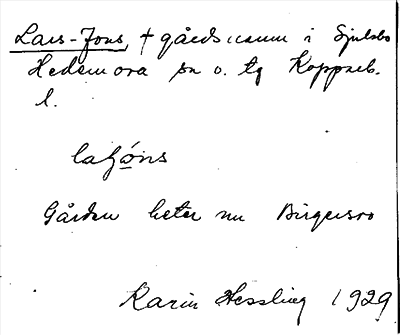 Lars-Jons, † gårdsnamn i Sjulsbo
Hedemora sn o. tg Kopparb.
l.
laʃóns
Gården heter nu Birgersro
Karin Hessling 1929